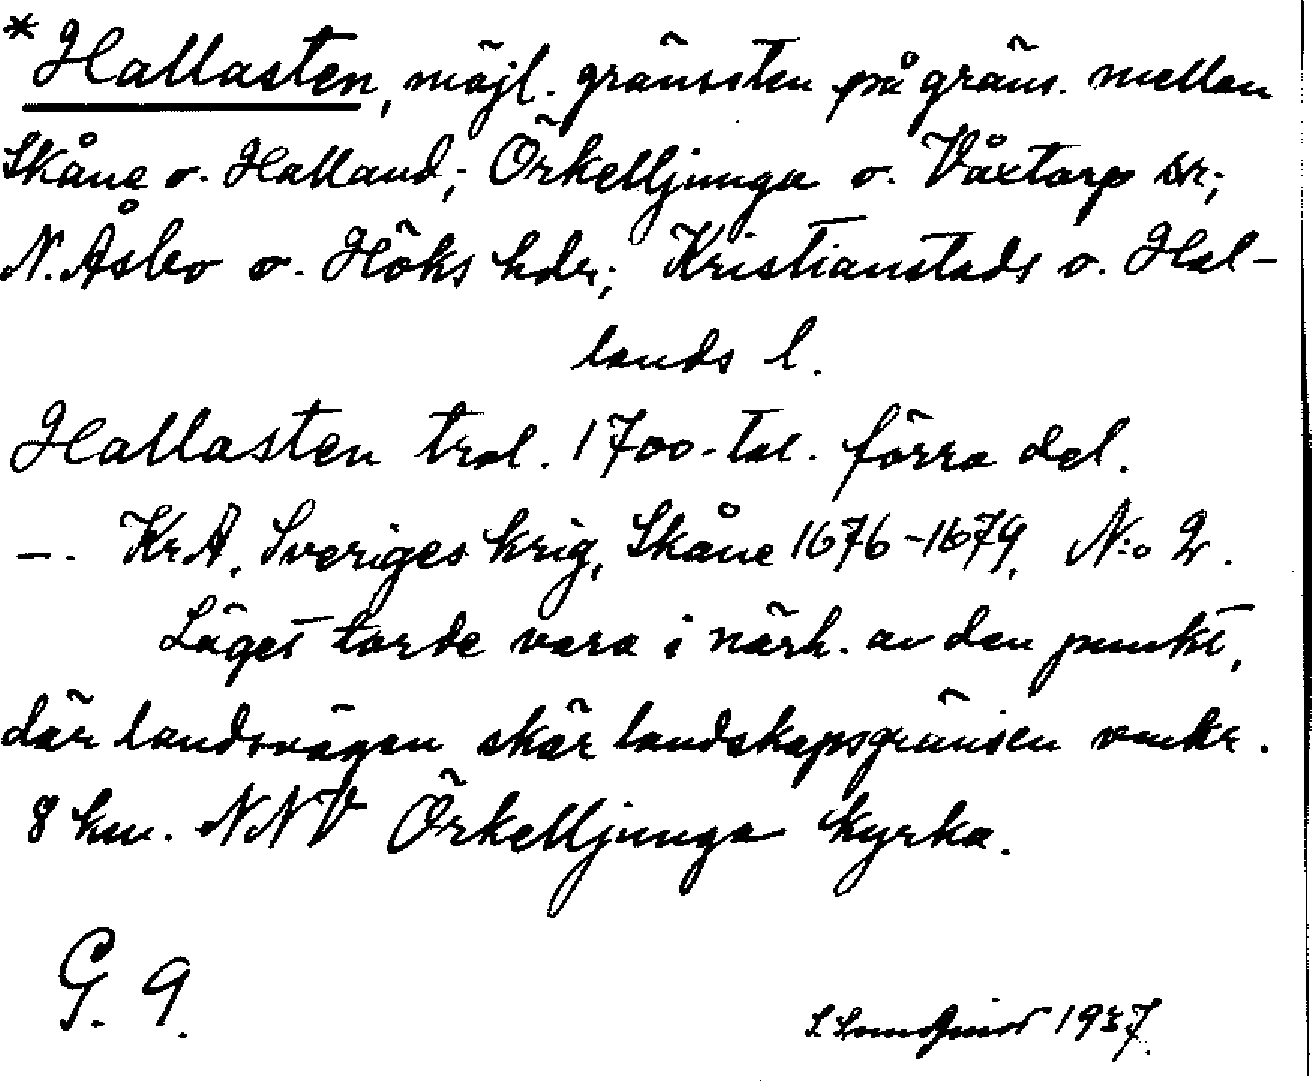 *Hallasten, möjl. gränssten på gräns. mellan
Skåne o. Halland; Örkelljunga o. Våxtorp sr;
N. Åsbo o. Höks hdr; Kristianstads o. Hal-
lands l.
Hallasten trol. 1700-tal. förra del.
–. KrA. Sveriges krig, Skåne 1676-1679. N:o 2.
Läget torde vara i närh. av den punkt,
där landsvägen skär landskapsgränsen
8 km. NNV Örkelljunga kyrka.
G. 9.
1937.